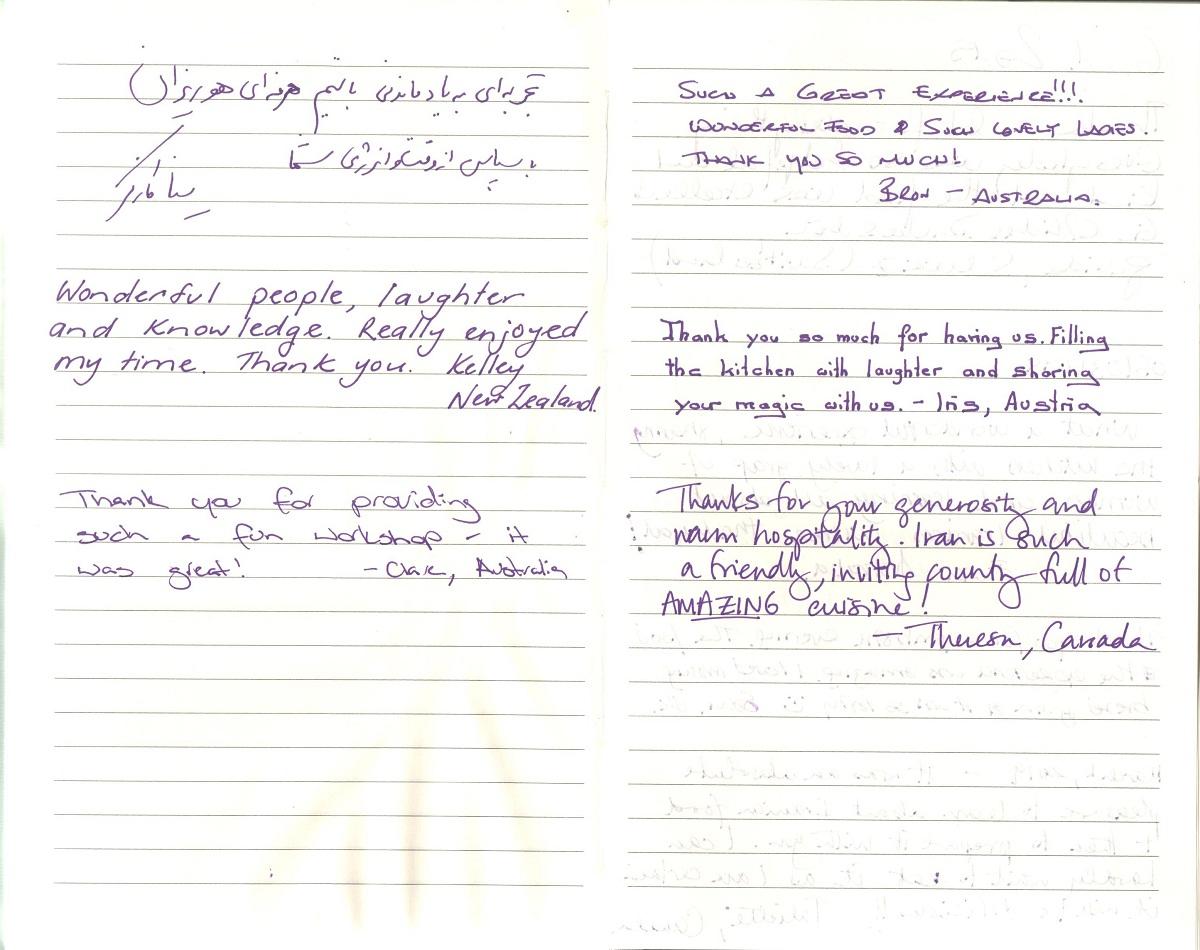 تجربه‌ای به یاد ماندنی با تیم حرفه‌ای هوریزان
با سپاس از وقت و انرژی شما
Wonderful people, laughter
and knowledge. Really enjoyed
my time. Thank you. Kelley
New Zealand.
Thank you for providing
such a fun workshop - it
was great! - Clare, Australia
SUCH A GREAT EXPERIENCE!!!
WONDERFUL FOOD & SUCH LOVELY LADIES.
THANK YOU SO MUCH!
BRON - AUSTRALIA.
Thank you so much for having us. Filling
the kitchen with laughter and sharing
your magic with us. - Iris, Austria
Thanks for your generosity and
warm hospitality. Iran is such
a friendly, inviting county full of
AMAZING cuisine!
- Theresa, Canada